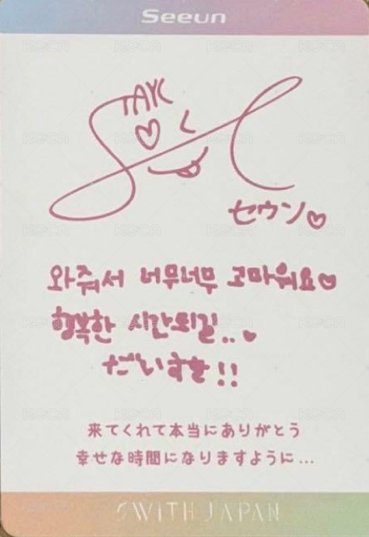 Seeun
STAYC♡
セウン♡
와줘서 너무너무 고마워요♡
행복한 시간되길..♡
だいすき!!
来てくれて本当にありがとう
幸せな時間になりますように...
SWITH JAPAN